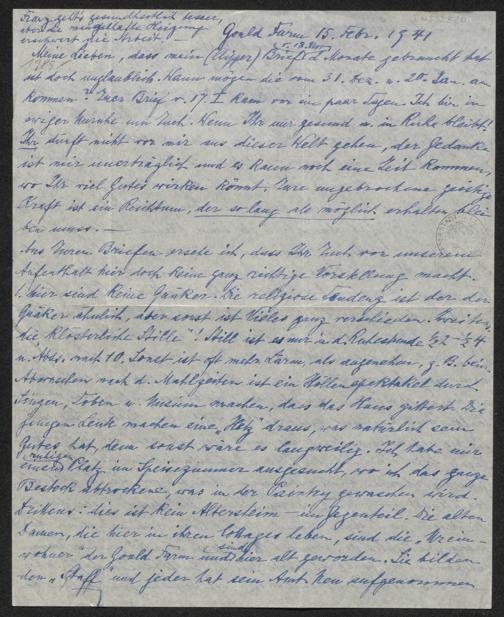 Franzl geht's gesundheitlich besser,
aber die mangelhafte Heizung
erschwert die Arbeit!
Gould Farm 15. Febr. 1941
v. 13. Nov.
Meine Lieben, dass mein (voriger) Brief 2 Monate gebraucht hat
ist doch unglaublich. Wann mögen die vom 31. Dez. u. 20. Jan. an
kommen? Euer Brief v. 17. I kam vor ein paar Tagen. Ich bin in
ewiger Unruhe um Euch. Wenn Ihr nur gesund u. in Ruhe bleibt!
Ihr dürft nicht vor mir aus dieser Welt gehen, der Gedanke
ist mir unerträglich und es kann noch eine Zeit kommen,
wo Ihr viel Gutes wirken könnt. Eure ungebrochene geistige
Kraft ist ein Reichtum, der so lang als möglich erhalten blei
ben muss. —
Aus Euren Briefen ersehe ich, dass Ihr Euch von unserem
Aufenthalt hier doch keine ganz richtige Vorstellung macht.
1. hier sind keine Quäker. Die religiöse Tendenz ist der der
Quäker ähnlich, aber sonst ist Vieles ganz verschieden. Zweitens,
die "klösterliche Stille"! Still ist es nur in d. Ruhestunde ½2 - ½4
u. Abds. nach 10. Sonst ist oft mehr Lärm, als angenehm, z. B. beim
Abwaschen nach d. Mahlzeiten ist ein Höllenspektakel durch
Singen, Toben u. Unsinn machen, dass das Haus zittert. Die
jungen Leute machen eine "Hetz" draus, was natürlich sein
Gutes hat, denn sonst wäre es langweilig. Ich habe mir
ruhigen
einen Platz im Speisezimmer ausgesucht, wo ich das ganze
Besteck abtrockene, was in der Paintry gewaschen wird.
Drittens: dies ist kein Altersheim - im Gegenteil. Die alten
Damen, die hier in ihren Cottages leben, sind die "Urein-
wohner" der Gould Farm und sind hier alt geworden. Sie bilden
den "Staff" und jeder hat sein Amt. Neu aufgenommen